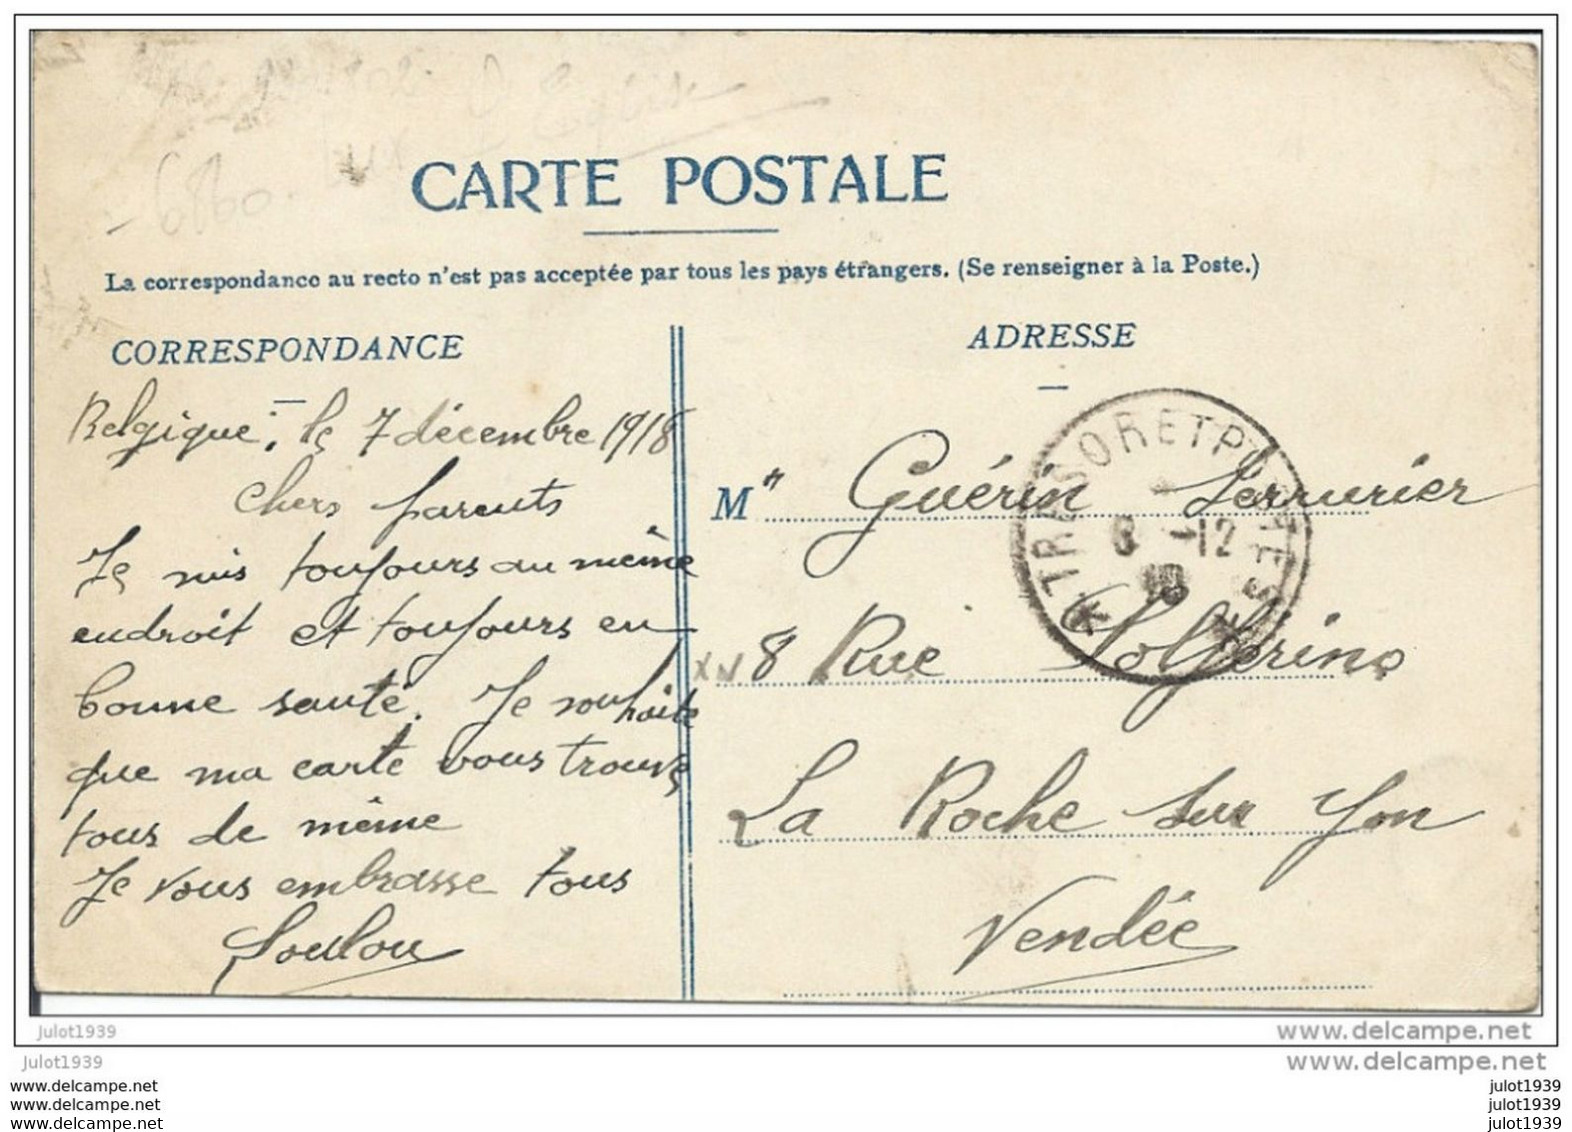 6860.
CARTE POSTALE
La correspondance au recto n'est pas acceptée par tous les pays étrangers. (Se renseigner à la Poste.)
CORRESPONDANCE
Belgique, le 7 décembre 1918
Chers parents
Je suis toujours au même
endroit et toujours en
bonne santé. Je souhaite
que ma carte vous trouve
tous de même
Je vous embrasse tous
Loulou
ADRESSE
TRESOR ET POSTES
8 -12
M Guérin Serrurier
8 Rue Solférino
La Roche sur Yon
Vendée
Julot1939
www.delcampe.net
Julot1939
www.delcampe.net
www.delcampe.net
julot1939
www.delcampe.net
julot1939
www.delcampe.net
julot1939